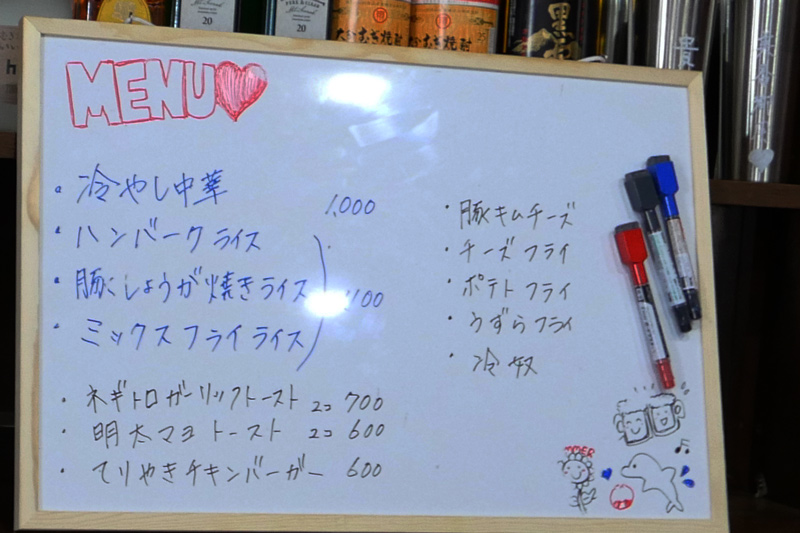 20
20
大分むぎ焼酎
大分むぎ焼酎
25
黒
MENU
・冷やし中華 1,000
・ハンバーグライス
・豚しょうが焼きライス
・ミックスフライライス
・ネギトロガーリックトースト 2コ 700
・明太マヨトースト 2コ 600
・てりやきチキンバーガー 600
・豚キムチーズ
・チーズフライ
・ポテトフライ
・うずらフライ
・冷奴